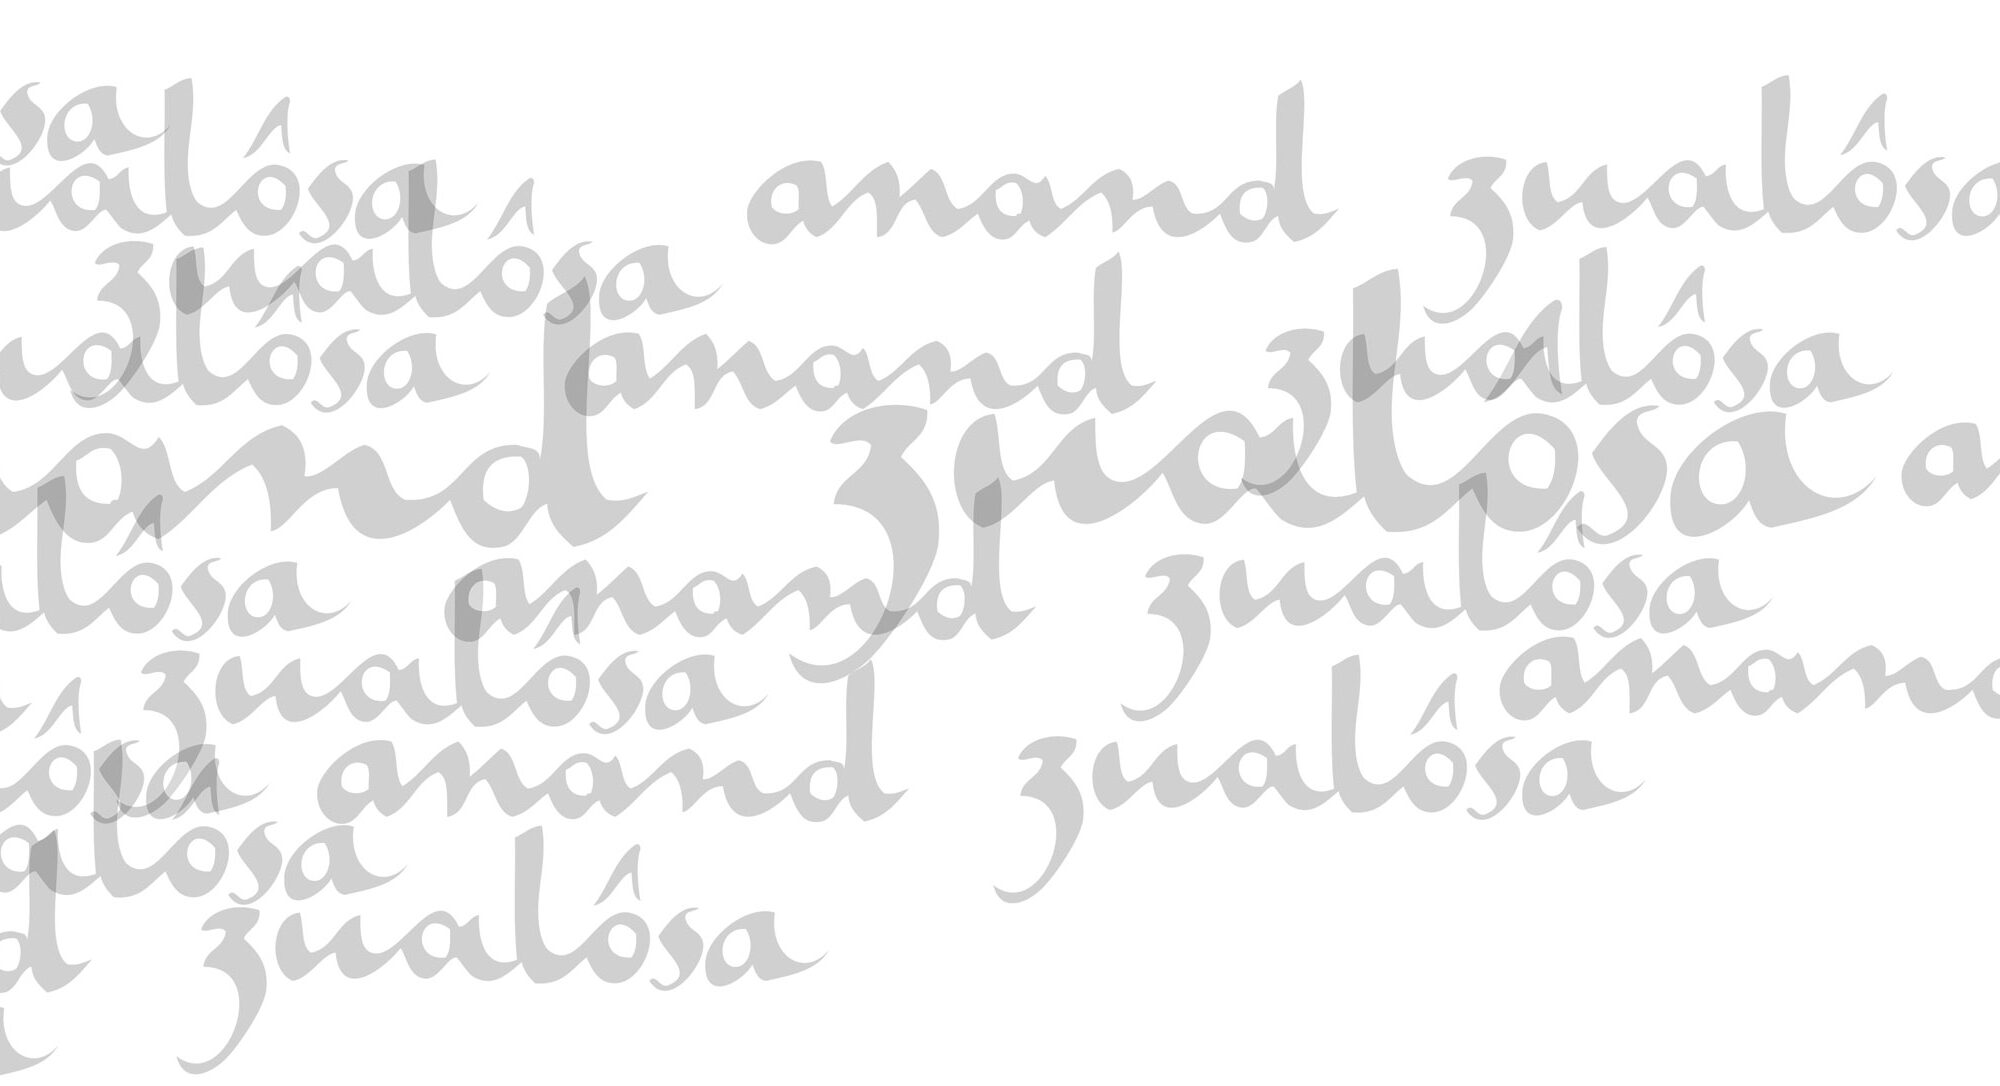 sa
ualôsa anand zualôsa
zualôsa
ualôsa anand zualôsa
anand zualôsa a
alôsa anand zualôsa
zualôsa anand
ôsa anand zualôsa
alôsa
d zualôsa